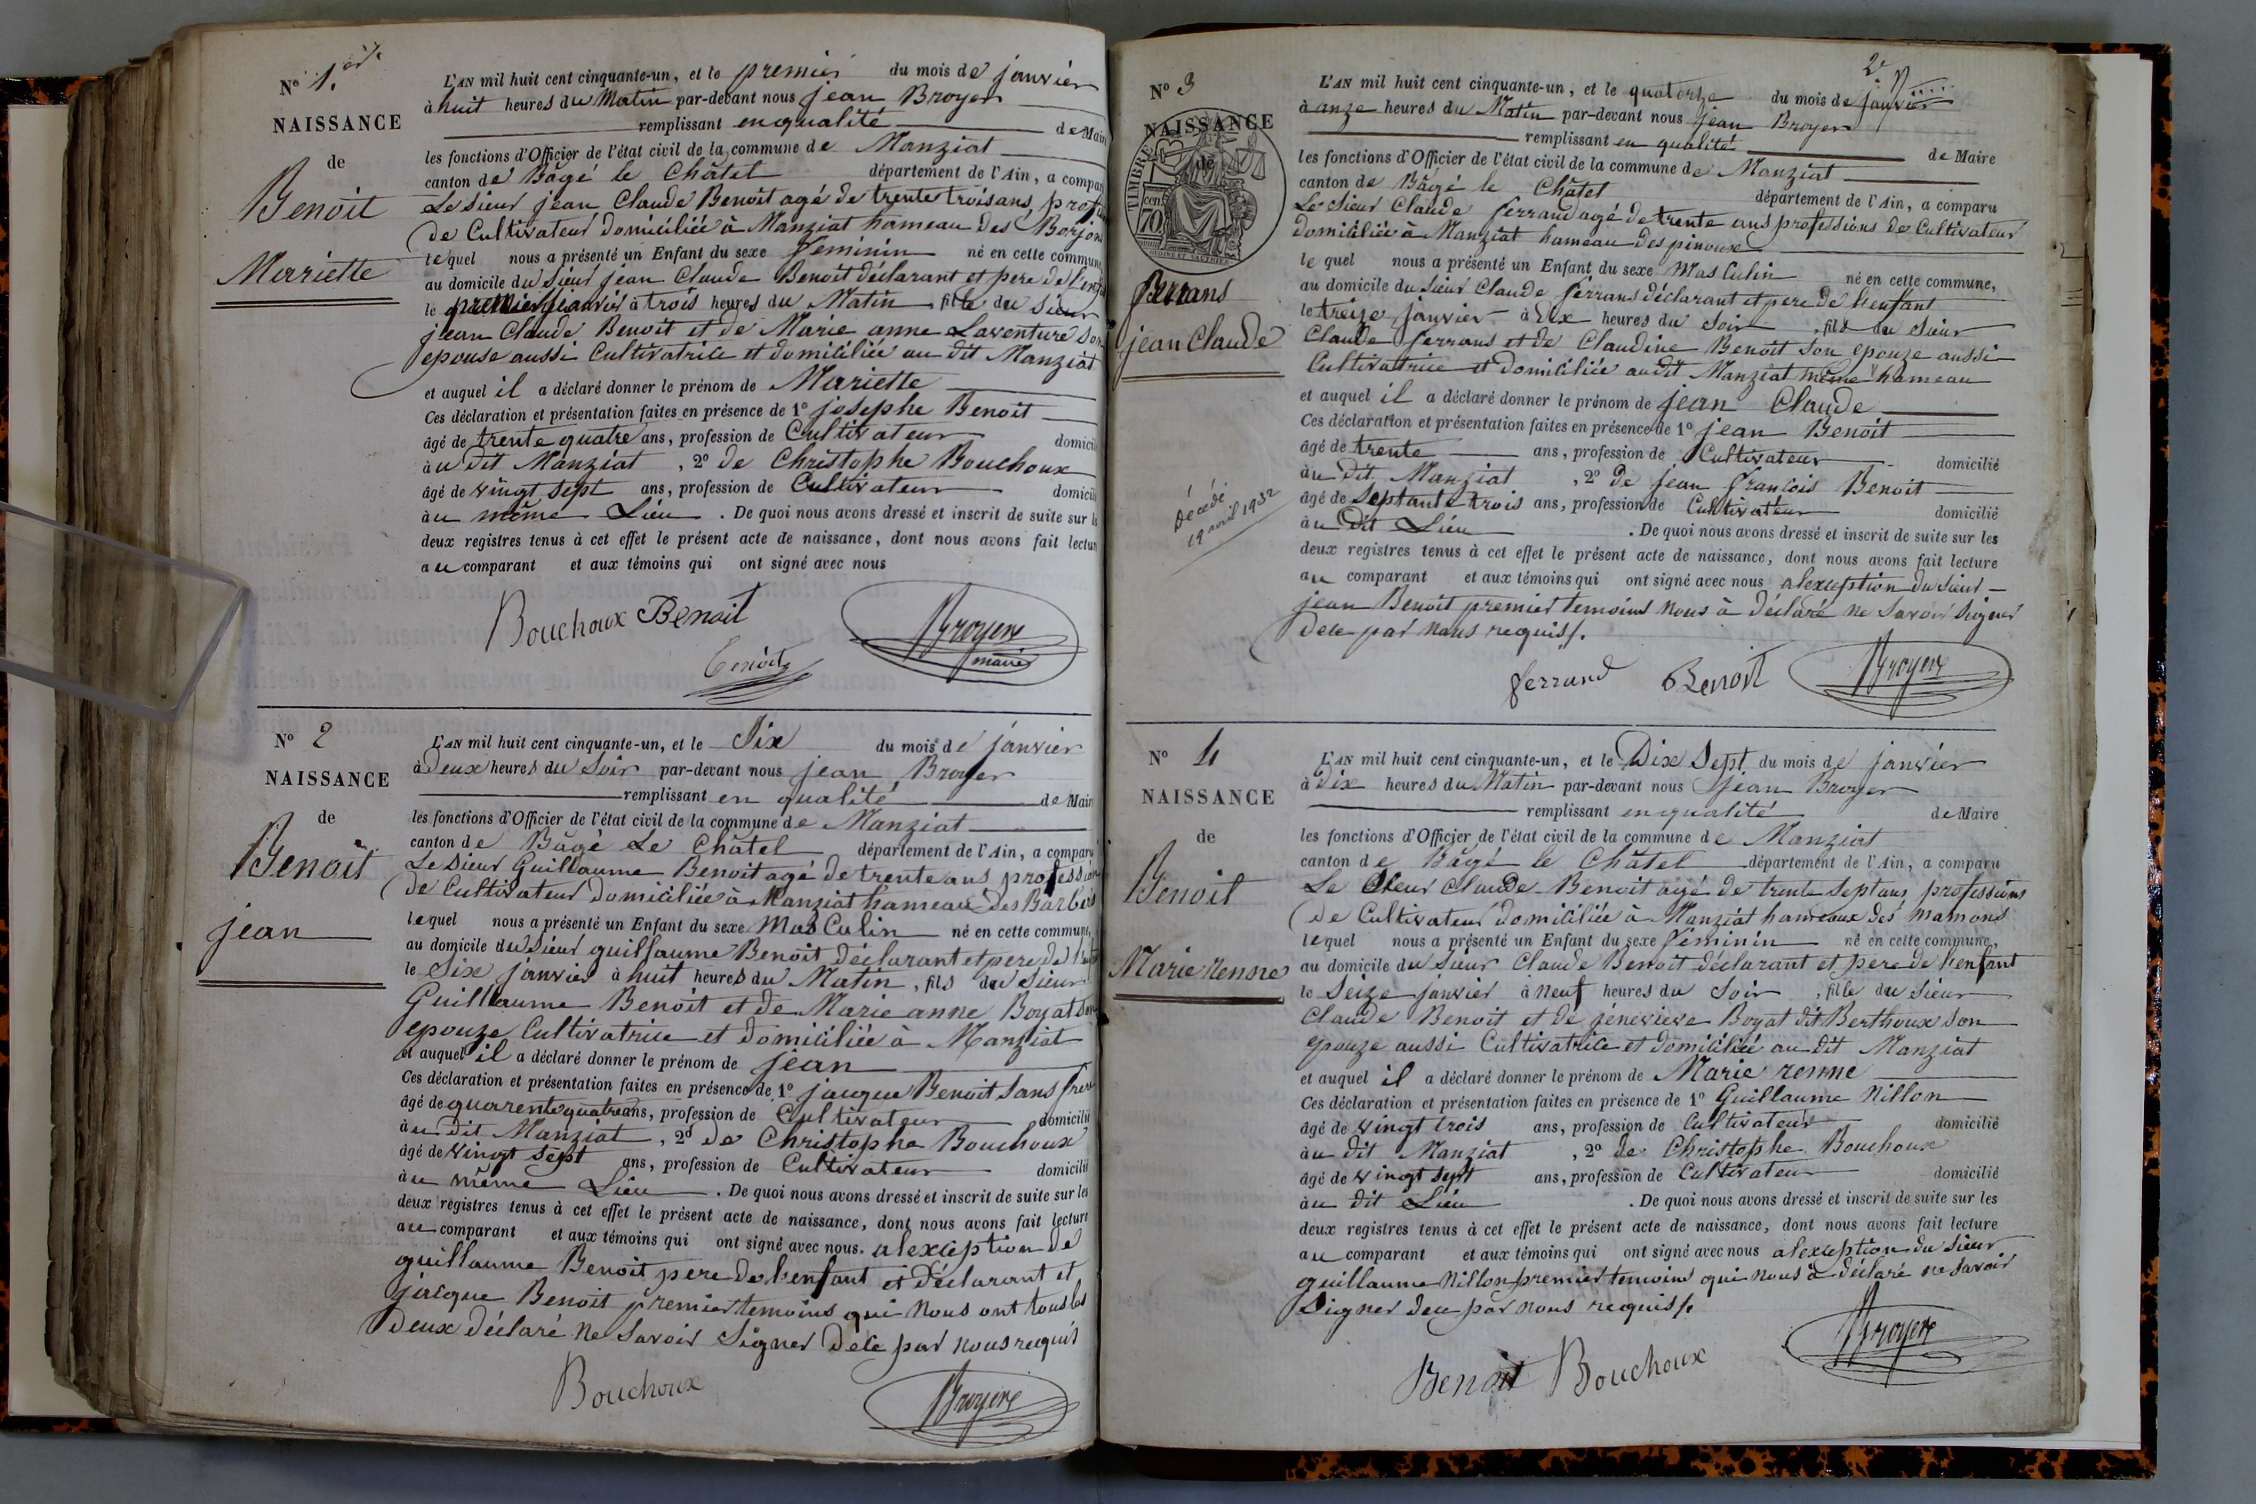 No 1.er
NAISSANCE
de
Benoit
Mariette
L'AN mil huit cent cinquante-un, et le premier du mois de janvier
à huit heures du Matin par-devant nous jean Broyer
remplissant en qualité de Maire
les fonctions d'Officier de l'état civil de la commune de Manziat
canton de Bâgé le Châtel département de l'Ain, a compar
Le sieur jean Claude Benoit agé de trente trois ans, profes
de Cultivateur domiciliée à Manziat hameau des Borjons
lequel nous a présenté un Enfant du sexe feminin né en cette commune
au domicile du Sieur jean Claude Benoit déclarant et pere de l'enfa
le premier janvier à trois heures du Matin fille du Sieur
jean Claude Benoit et de Marie anne Laventure son
epouse aussi Cultivatrice et domiciliée au dit Manziat
et auquel il a déclaré donner le prénom de Mariette
Ces déclaration et présentation faites en présence de 1o josephe Benoit
âgé de trente quatre ans, profession de Cultivateur domicili
à u dit Manziat, 2o de Christophe Bouchoux
âgé de vingt sept ans, profession de Cultivateur domicili
à u même Lieu. De quoi nous avons dressé et inscrit de suite sur le
deux registres tenus à cet effet le présent acte de naissance, dont nous avons fait lectur
au comparant et aux témoins qui ont signé avec nous
Bouchoux Benoit Broyer
maire
Benoit
No 2
NAISSANCE
de
Benoit
jean
L'AN mil huit cent cinquante-un, et le Six du mois de janvier
à Deux heures du Soir par-devant nous jean Broyer
remplissant en qualité de Mair
les fonctions d'Officier de l'état civil de la commune de Manziat
canton de Bâgé Le Châtel département de l'Ain, a comparu
Le sieur Guillaume Benoit agé de trente ans profession
de Cultivateur domiciliée à Manziat hameau des Barbiers
lequel nous a présenté un Enfant du sexe MasCulin né en cette commune,
au domicile du sieur guillaume Benoit déclarant et pere de l'enfant
le Six janvier à huit heures du Matin, fils du Sieur
Guillaume Benoit et de Marie anne Boyat son
epouze Cultivatrice et domiciliée à Manziat
et auquel il a déclaré donner le prénom de jean
Ces déclaration et présentation faites en présence de 1o jacque Benoit Sans frere
âgé de quarente quatre ans, profession de Cultivateur domicilié
à u dit Manziat, 2o de Christophe Bouchoux
âgé de vingt sept ans, profession de Cultivateur domicilié
à u même Lieu. De quoi nous avons dressé et inscrit de suite sur les
deux registres tenus à cet effet le présent acte de naissance, dont nous avons fait lecture
au comparant et aux témoins qui ont signé avec nous. alexception de
guillaume Benoit pere de l'enfant et déclarant et
jacque Benoit premier temoins qui nous ont tous les
deux déclaré ne Savoir Signer déce par nous requis
Bouchoux Broyer
2e
No 3
NAISSANCE
de
TIMBRE
70
cent
Ferrans
jean Claude
Décédé
19 avril 1932
L'AN mil huit cent cinquante-un, et le quatorze du mois de janvier
à onze heures du Matin par-devant nous jean Broyer
remplissant en qualité de Maire
les fonctions d'Officier de l'état civil de la commune de Manziat
canton de Bâgé le Châtel département de l'Ain, a comparu
Le Sieur Claude ferrand agé de trente ans professions de Cultivateur
domiciliée à Manziat hameau des pinoux
le quel nous a présenté un Enfant du sexe MasCulin né en cette commune,
au domicile du Sieur Claude ferrans déclarant et pere de l'enfant
le treize janvier à Dix heures du Soir, fils du Sieur
Claude ferrans et de Claudine Benoit son epouze aussi
Cultivatrice et domiciliée au dit Manziat même hameau
et auquel il a déclaré donner le prénom de jean Claude
Ces déclaration et présentation faites en présence de 1o jean Benoit
âgé de trente ans, profession de Cultivateur domicilié
à u dit Manziat, 2o de jean francois Benoit
âgé de Septante trois ans, profession de Cultivateur domicilié
à u Dit Lieu. De quoi nous avons dressé et inscrit de suite sur les
deux registres tenus à cet effet le présent acte de naissance, dont nous avons fait lecture
au comparant et aux témoins qui ont signé avec nous alexception du Sieur
jean Benoit premier temoins nous à déclaré ne Savoir Signer
dece par nous requis.
ferrand Benoit Broyer
No 4
NAISSANCE
de
Benoit
Marie renne
L'AN mil huit cent cinquante-un, et le Dix Sept du mois de janvier
à Dix heures du Matin par-devant nous jean Broyer
remplissant en qualité de Maire
les fonctions d'Officier de l'état civil de la commune de Manziat
canton de Bâgé le Châtel département de l'Ain, a comparu
Le Sieur Claude Benoit agé de trente Sept ans, professions
de Cultivateur domiciliée à Manziat hameaux des mamons
lequel nous a présenté un Enfant du sexe féminin né en cette commune,
au domicile du Sieur Claude Benoit déclarant et pere de l'enfant
le Seize janvier à Neuf heures du Soir, fille du Sieur
Claude Benoit et de jenevieve Boyat dit Berthoux son
epouze aussi Cultivatrice et domiciliée au dit Manziat
et auquel il a déclaré donner le prénom de Marie renne
Ces déclaration et présentation faites en présence de 1o Guillaume Nillon
âgé de vingt trois ans, profession de Cultivateur domicilié
à u dit Manziat, 2o de Christophe Bouchoux
âgé de vingt sept ans, profession de Cultivateur domicilié
à u dit Lieu. De quoi nous avons dressé et inscrit de suite sur les
deux registres tenus à cet effet le présent acte de naissance, dont nous avons fait lecture
au comparant et aux témoins qui ont signé avec nous alexception du Sieur
guillaume Nillon premier temoins qui nous à déclaré ne Savoir
Signer dece par nous requis.
Benoit Bouchoux Broyer